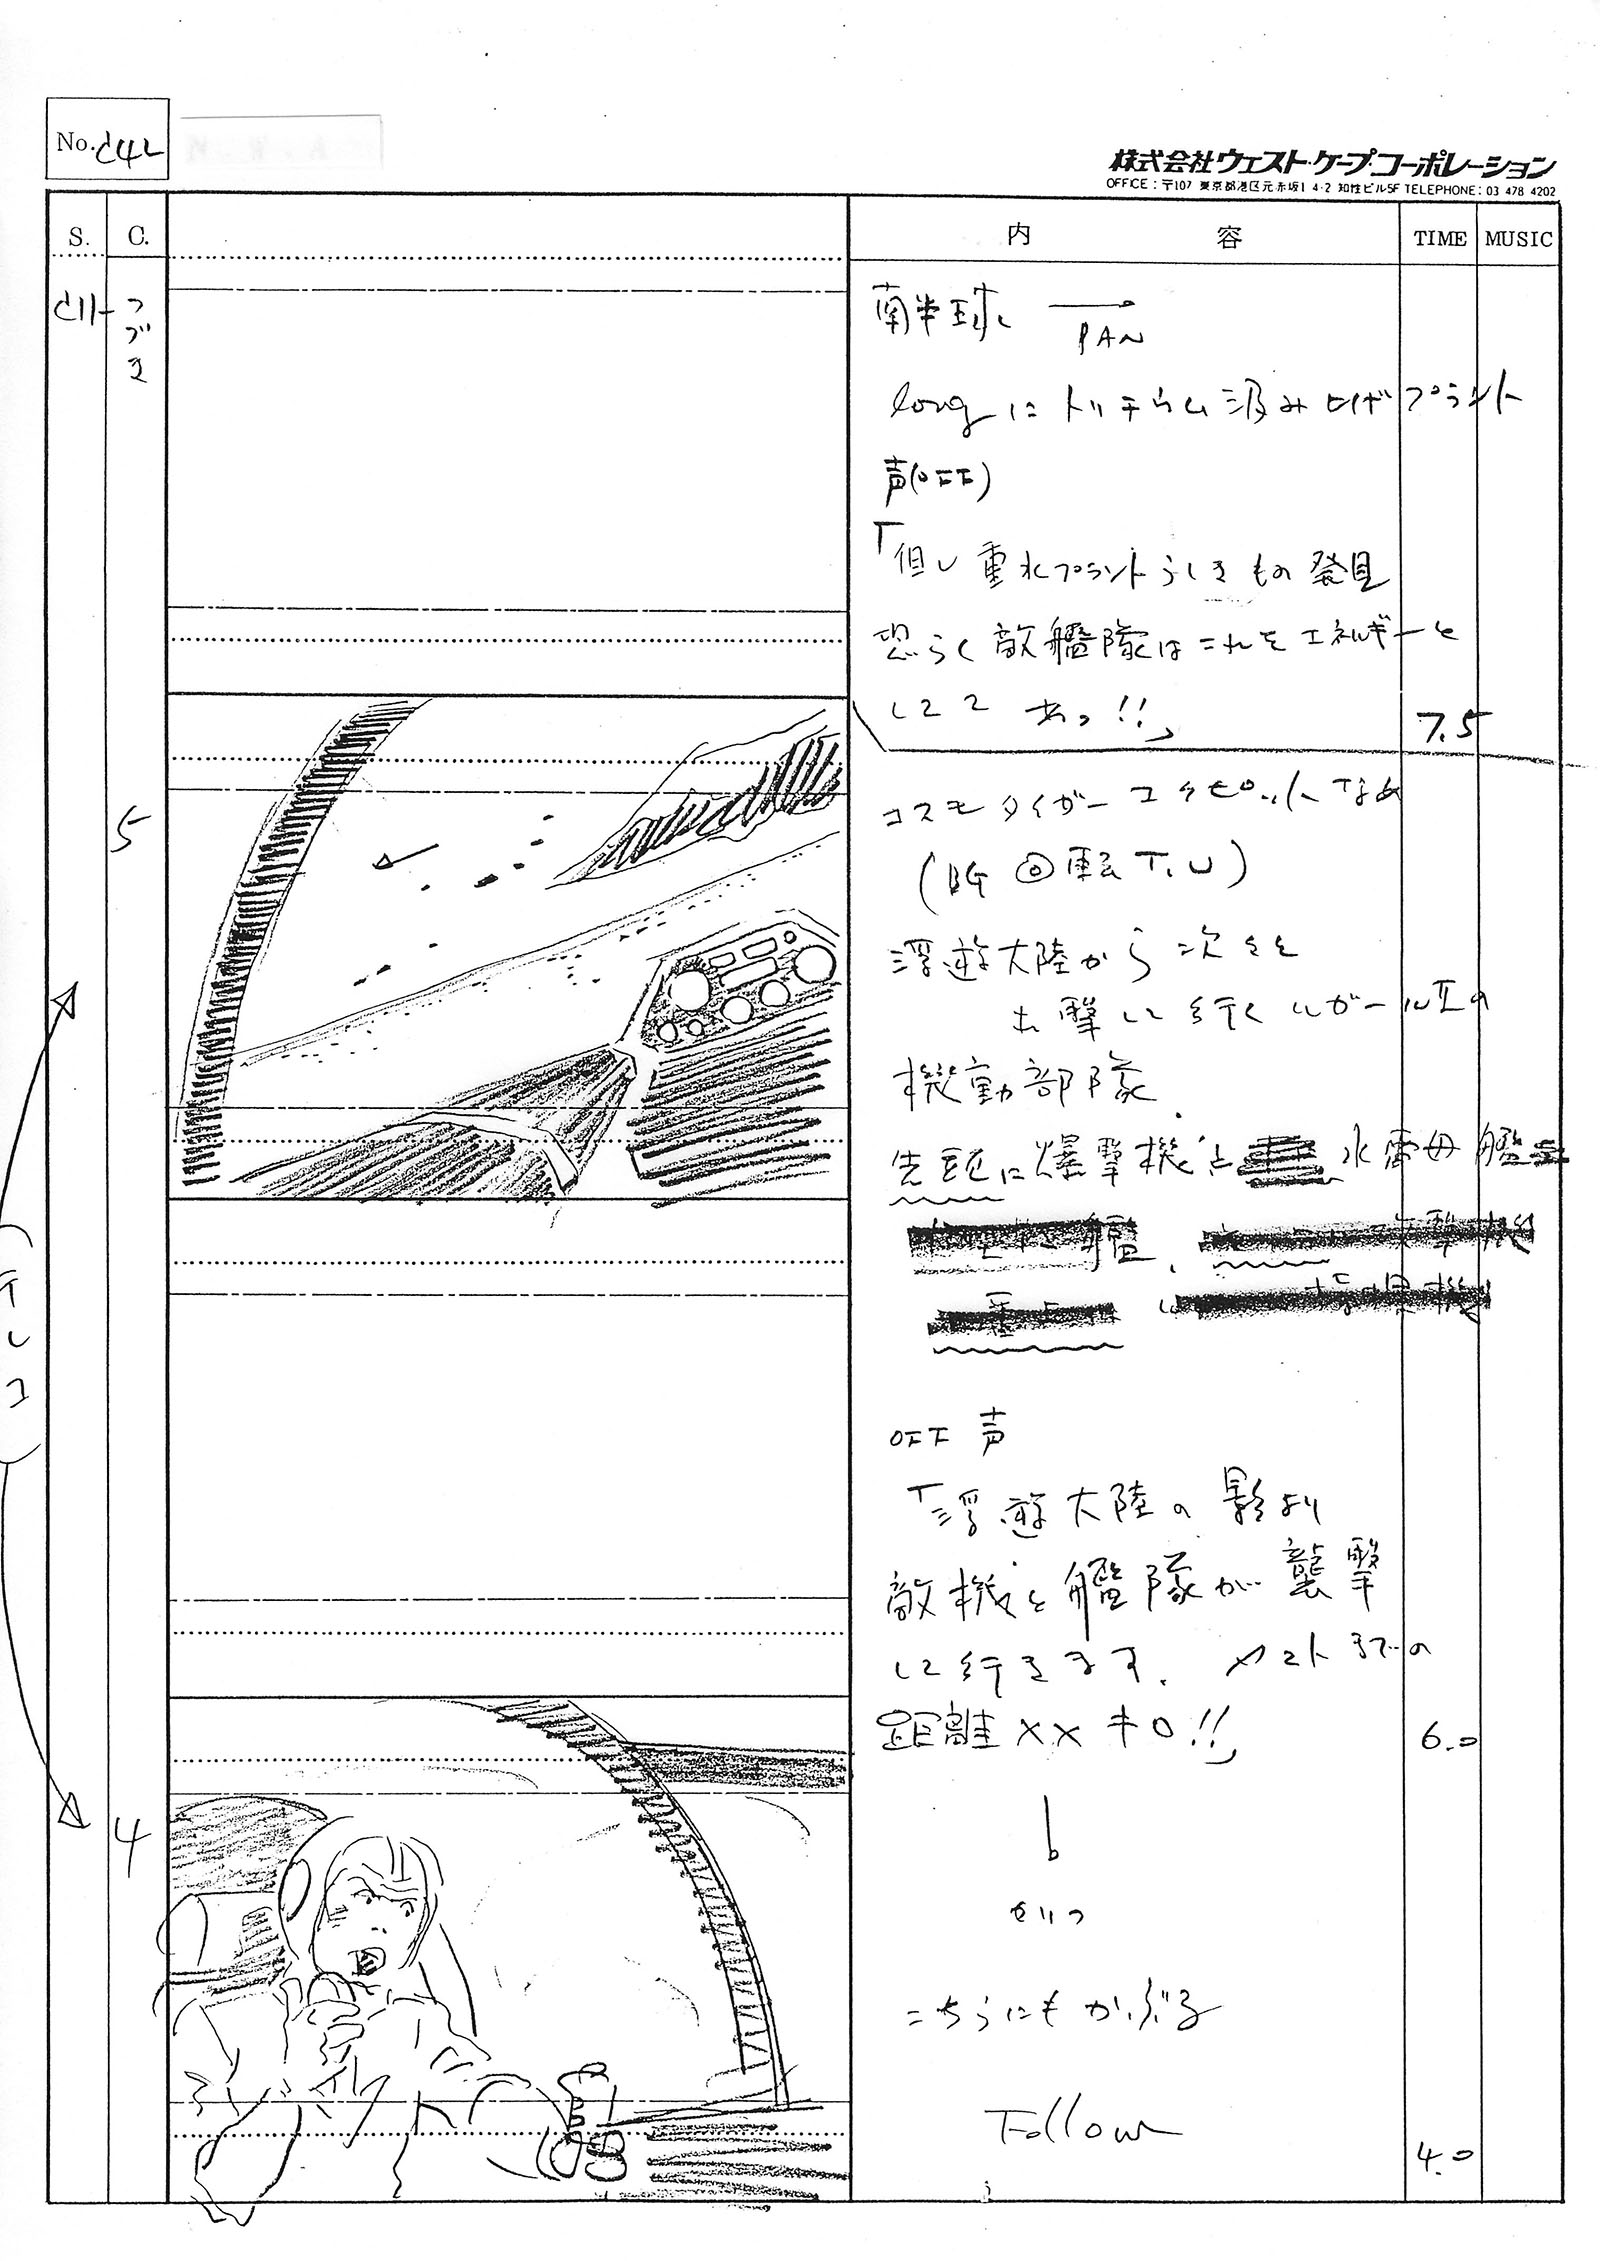 No. d42
株式会社ウェスト・ケープ・コーポレーション
OFFICE：〒107 東京都港区元赤坂1 4-2 知性ビル5F TELEPHONE: 03 478 4202
S. C. 内容 TIME MUSIC
つづき
南半球
PAN
longに トリチウム汲み上げプラント
声(OFF)
「但し重水プラントらしきもの発見
恐らく敵艦隊はこれをエネルギーと
して あっ!!」
7.5
5
コスモタイガーコクピットなめ
(BG 回転 T.U)
浮遊大陸から次々と
出撃して行く ルガールⅡの
機動部隊
先頭に爆撃機と 水雷母艦
OFF 声
「浮遊大陸の影より
敵機と艦隊が襲撃
して行きます. ヤマトまでの
距離××キロ!!」
6.0
テレコ
4
セリフ
こちらにもかぶる
Follow
4.0